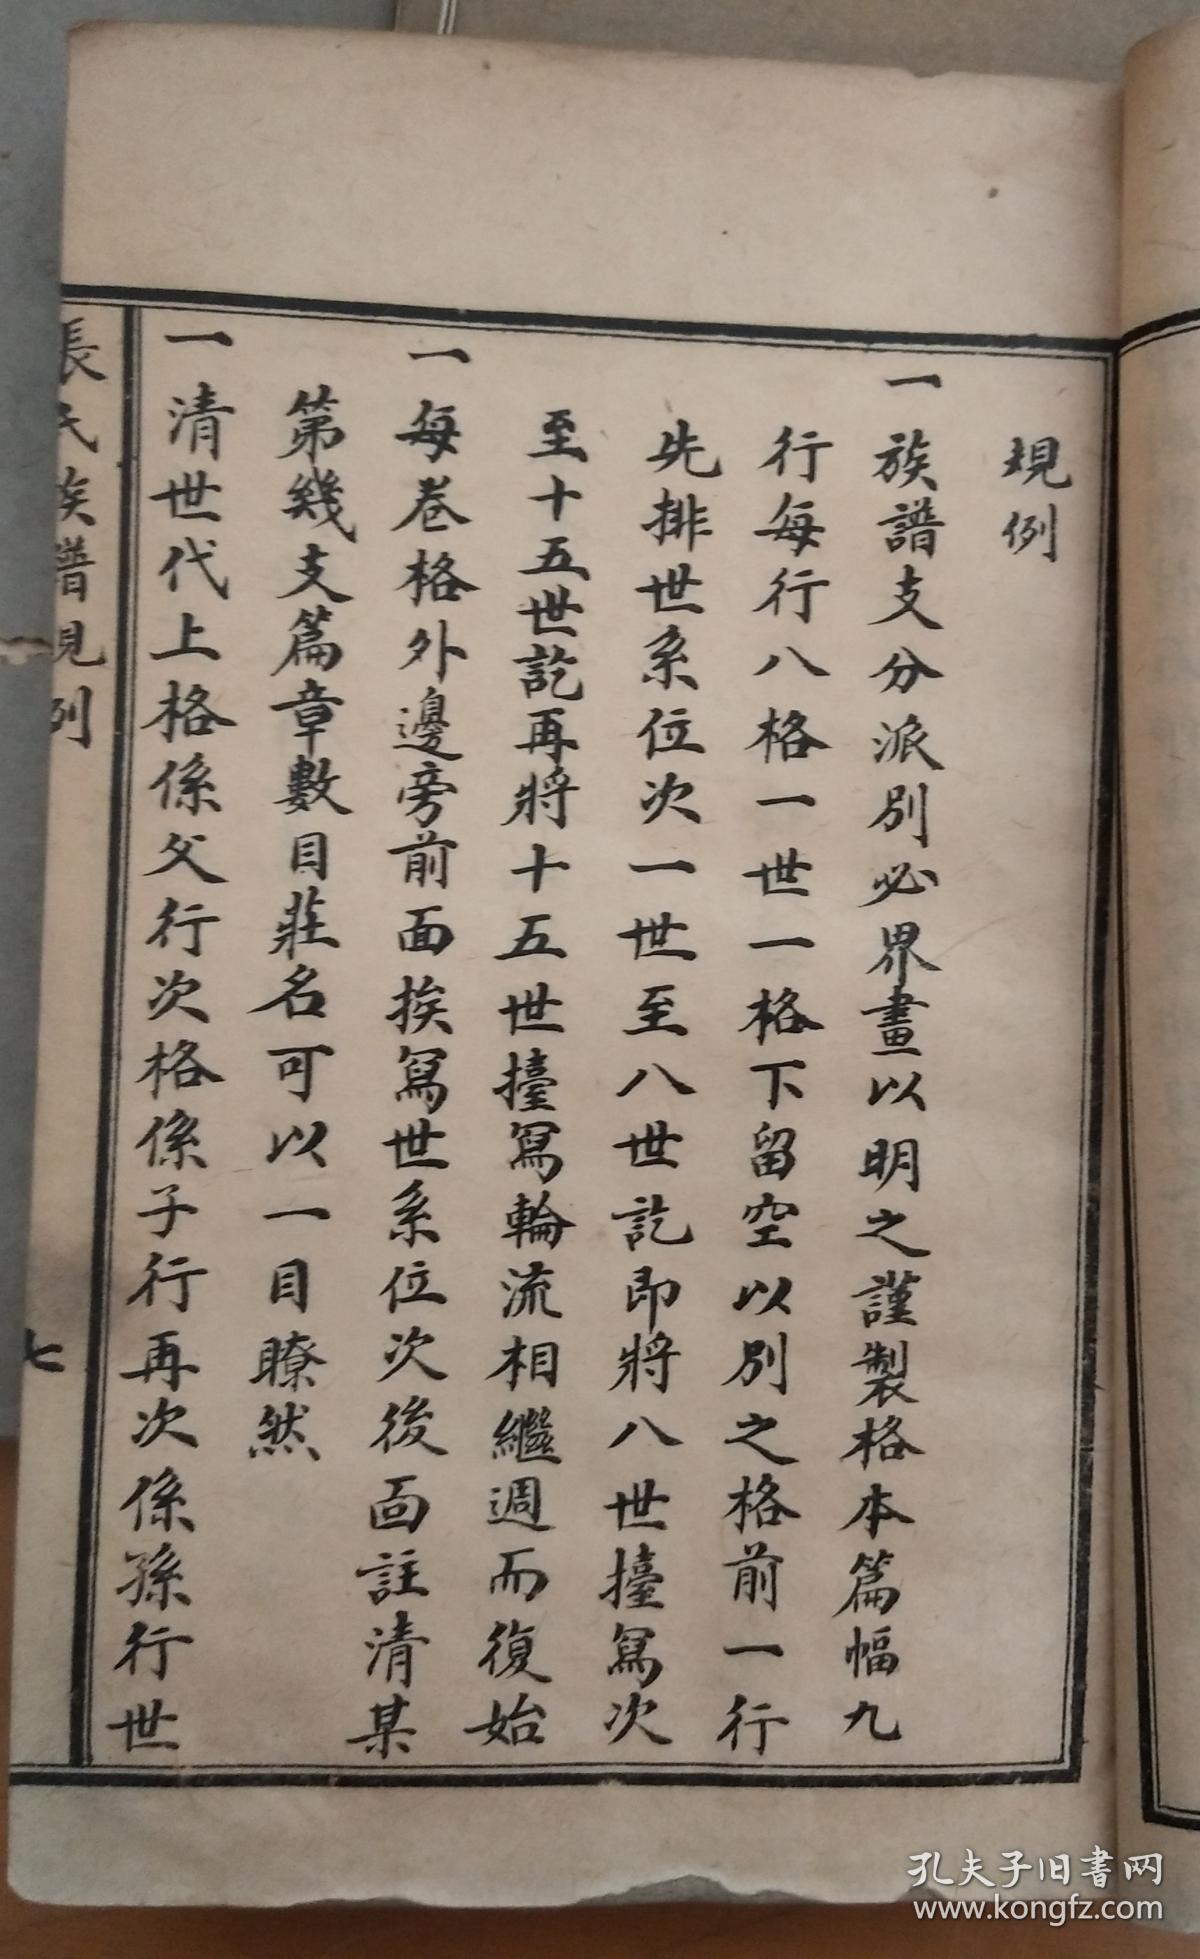 規例
一族譜支分派別必界畫以明之謹製格本篇幅九
行每行八格一世一格下留空以別之格前一行
先排世系位次一世至八世訖即將八世擡寫次
至十五世訖再將十五世擡寫輪流相繼週而復始
一每卷格外邊旁前面挨寫世系位次後面註清某
第幾支篇章數目莊名可以一目瞭然
一清世代上格係父行次格係子行再次係孫行世
張氏族譜規例
七
孔夫子旧书网
www.kongfz.com